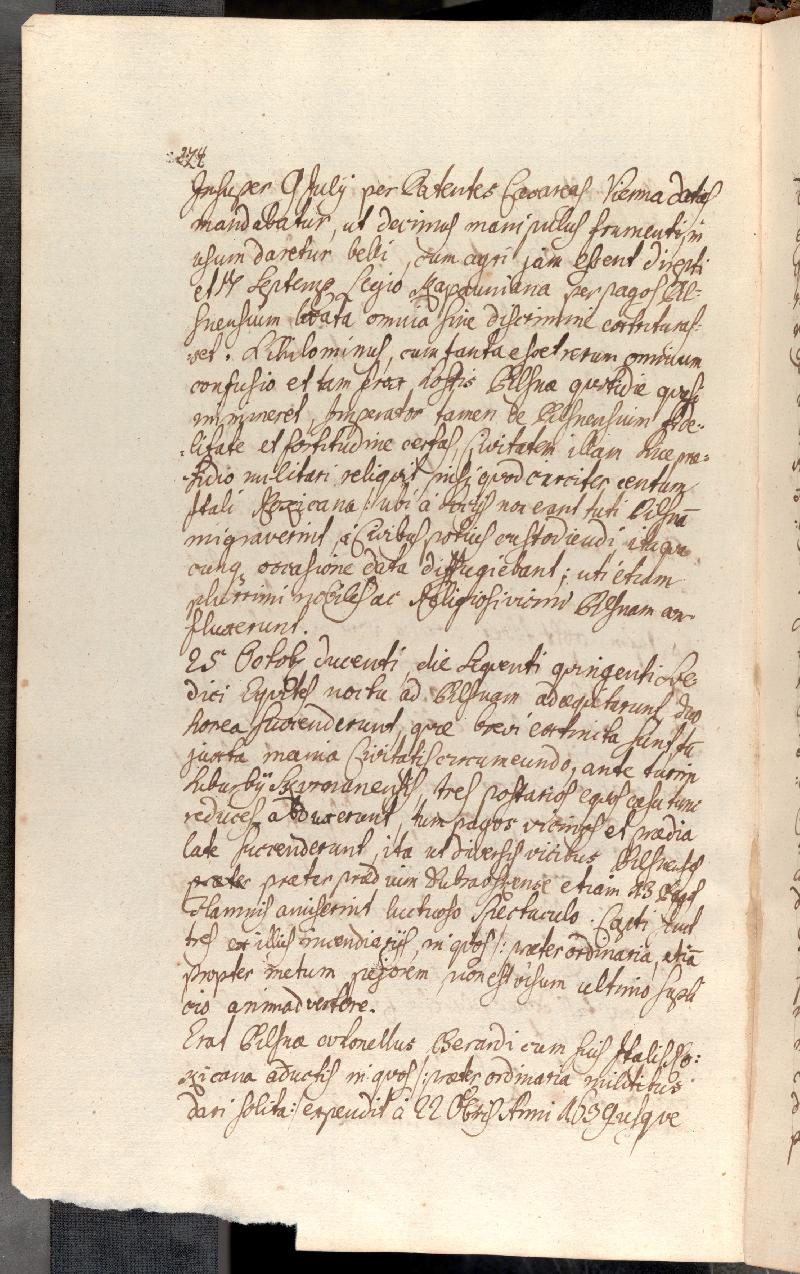 274
Insuper 9 July per Patentes Caesareas Vienna datas
mandabatur, ut decimus manipulus frumenti in
usum daretur belli, cum agri jam essent direpti
et 17 Septemp. Legio Kapauniana per pagos Pil-
snensium locata omnia sine discrimine contritura-
vet. Nihilominus, cum tanta esset rerum omnium
confusio et tam ferox hostis Pilsnae quotidie quasi
immineret, Imperator tamen de Pilsnensium fide-
litate et fortitudine certus, Civitatem illam sine prae-
sidio militari reliquit nisi quod circiter centum
Itali Rocicana /: ubi a noctis non erant tuti Pilsnã
migraverint a Civibus potius custodiendi
cunq occasione data diffugiebant; uti etiam
plurimi nobiles ac Religiosi vicini Pilsnam con-
fluxerunt.
25 Octob, ducenti, die sequenti quingenti Sve-
dici Equites noctu ad Pilsnam adequitarunt, duo
horea succenderunt, quae brevi extincta sunt, tu
juxta maenia Civitatis circumeundo, ante turim
suburbÿ Skvrnianensis, tres postarios equos caesa tunc
reduces abduxerunt, tum pagos vicinos et praedia
late succenderunt, ita ut diversis vicibus Pilsnensis
praeter praeter praedium etiam 13 Pagos
Flamnis amiserint luctuoso spectaculo. Capti sunt
tres ex illis incendiarÿs, in quos /: praeter ordinaria, etiã
propter metum pejorem non est visum ultimo supli
cio animadvertere.
Erat Pilsnae colonellus Berardi cum suis Italis Ro:
zicana aductis in quos /: praeter ordinaria militibus
dari solita :/ expendit a 22 Obris Anni 1639 usque